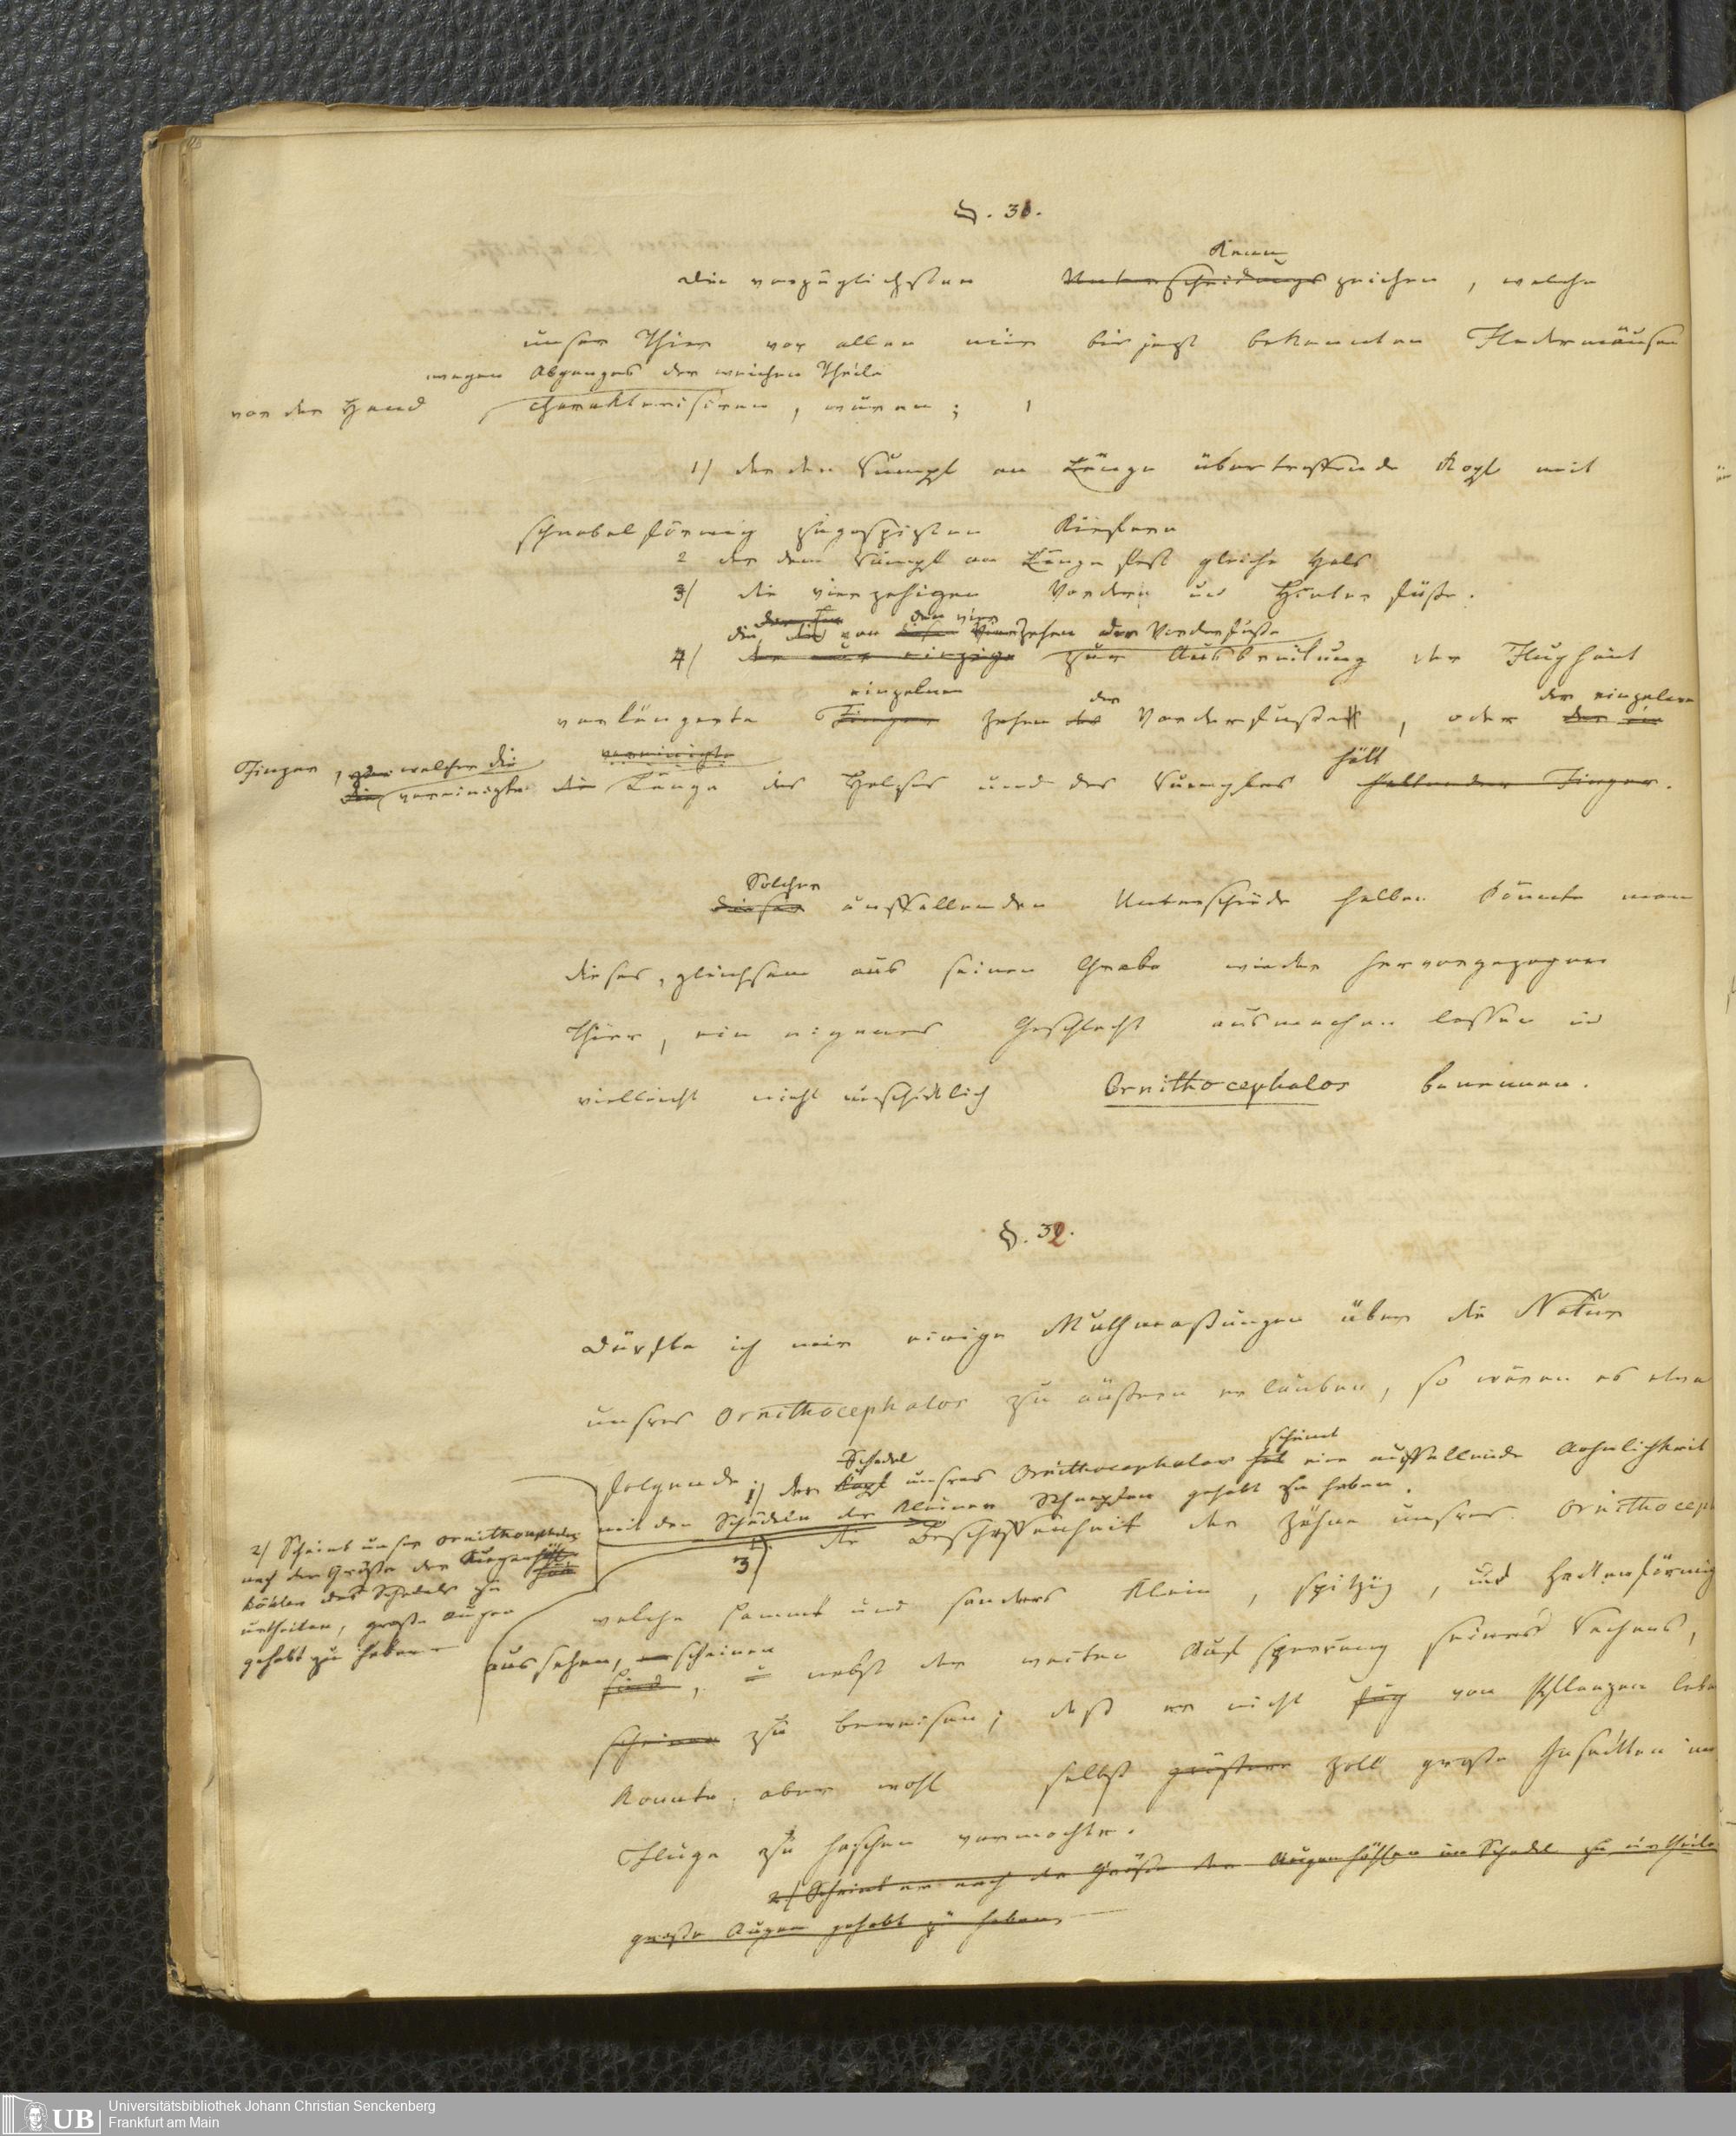 §. 31.
Kenn
Die vorzüglichsten Unterscheidungszeichen, welche
unser Thier vor allen mir bis jezt bekannten Fledermäusen
wegen Abganges der weichen Theile
vor der Hand charakterisiren, wären;
1) der den Rumpf an Länge übertreffende Kopf mit
schnabelförmig zugespizten Kiefern
2 der dem Rumpf an Länge fast gleiche Hals
3) die vierzehigen Vorder und Hinterfüße.
die von diesen den vier Zehen der Vorderfuße
4) der nur einzige zur Ausbreitung der Flughaut
einzelnen der der einzelne
verlängerte Finger Zehen des Vorderfußes, oder der die
Finger, welcher die vereinigte hält
die vereinigte die Länge des Halses und des Rumpfes haltender Finger.
Solcher
dieser auffallenden Unterschiede halber könnte man
dieses, gleichsam aus seinem Grabe wieder hervorgezogene
Thier, ein eigenes Geschlecht ausmachen lassen und
vielleicht nicht unschicklich Ornithocephalos benennen.
§. 32.
Dürfte ich mir einige Muthmaßungen über die Natur
unsres Ornithocephalos zu äußern erlauben, so wären es etwa
Schedel scheint
folgende; 1) der Kopf unsres Ornithocephalos hat eine auffallende Aehnlichkeit
mit den Schedeln der kleinen Schnepfen gehabt zu haben.
2) Scheint unser Ornithocephalos
nach der Größe der Augenhöh
höhlen des Schedels zu
urtheilen, große Augen
gehabt zu haben
3) die Beschaffenheit der Zähne unsres Ornithoceph
welche sammt und sonders klein, spitzig, und hackenförmig
aussehen, scheinen
sind, nebst der weiten Aufsperrung seines Rachens,
scheinen zu beweisen; daß er nicht von Pflanzen leben
konnte, aber wohl selbst größere zoll große Insecten im
Fluge zu haschen vermochte.
2) Scheint er nach der Größe der Augenhöhlen im Schedel zu urtheilen
große Augen gehabt zu haben
UB
Universitätsbibliothek Johann Christian Senckenberg
Frankfurt am Main